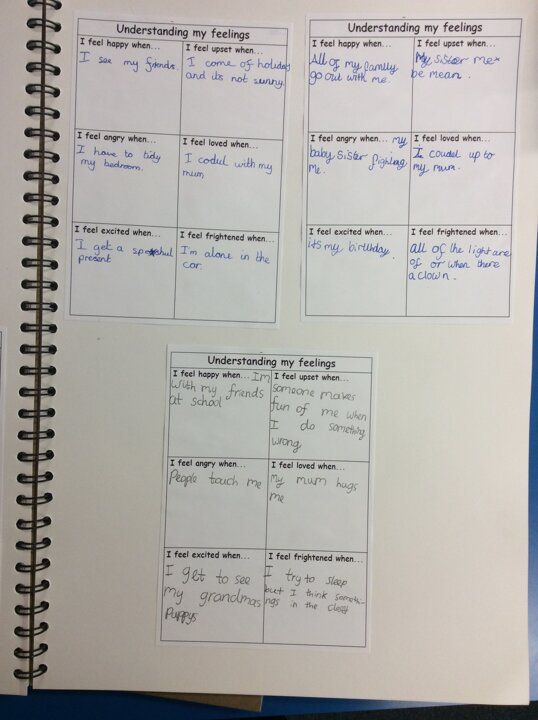 Understanding my feelings
I feel happy when...
I see my friends.
I feel upset when...
I come of holiday
and it's not sunny.
I feel angry when...
I have to tidy
my bedroom.
I feel loved when...
I codul with my
mum
I feel excited when...
I get a speshul
present
I feel frightened when...
I'm alone in the
car.
Understanding my feelings
I feel happy when...
All of my family
go out with me.
I feel upset when...
My sister me
be mean.
I feel angry when... my
baby sister fighting
me.
I feel loved when...
I coudel up to
my mum.
I feel excited when...
it's my birthday.
I feel frightened when...
all of the light are
of or when there
a clown.
Understanding my feelings
I feel happy when... Im
with my friends
at school
I feel upset when...
someone makes
fun of me when
I do something
wrong
I feel angry when...
People touch me
I feel loved when...
My mum hugs
me
I feel excited when...
I get to see
my grandmas
puppys
I feel frightened when...
I try to sleep
but I think somethi-
ngs in the closet